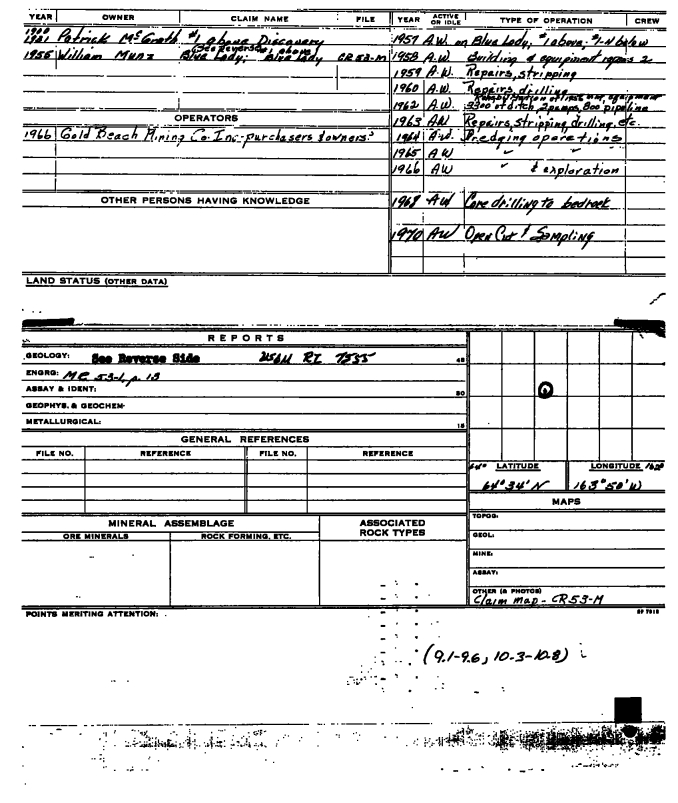 YEAR OWNER CLAIM NAME FILE
1900
1921 Patrick McGrath #1 above Discovery
(See Reverse) 1 above
1955 William Munz Blue Lady; Blue Lady CR 53-M
OPERATORS
1966 Gold Beach Mining Co. Inc-purchasers & owners?
OTHER PERSONS HAVING KNOWLEDGE
YEAR ACTIVE OR IDLE TYPE OF OPERATION CREW
1957 A.W. on Blue Lady, #1 above; #1-4 below
1958 A.W. Building & equipment repairs 2
1959 A.W. Repairs, stripping
1960 A.W. Repairs, drilling
1962 A.W. 3300' of ditch, 2 pumps, 800' pipeline
1963 AW Repairs, Stripping, drilling, etc.
1964 A.W. Dredging operations
1965 AW " "
1966 AW " & exploration
1968 AW Core drilling to bedrock
1970 AW Open Cut & Sampling
LAND STATUS (OTHER DATA)
REPORTS
GEOLOGY: See Reverse Side USBM RI 7535 45
ENGRG: MC 53-1, p. 13
ASSAY & IDENT: 30
GEOPHYS. & GEOCHEM-
METALLURGICAL: 15
GENERAL REFERENCES
FILE NO. REFERENCE FILE NO. REFERENCE
64° LATITUDE LONGITUDE 162°
64°34'N 163°50'W
MAPS
TOPOG:
GEOL:
MINE:
ASSAY:
OTHER (& PHOTOS)
Claim Map - CR53-M
MINERAL ASSEMBLAGE
ORE MINERALS ROCK FORMING, ETC.
ASSOCIATED ROCK TYPES
POINTS MERITING ATTENTION:
(9.1-9.6, 10.3-10.8)